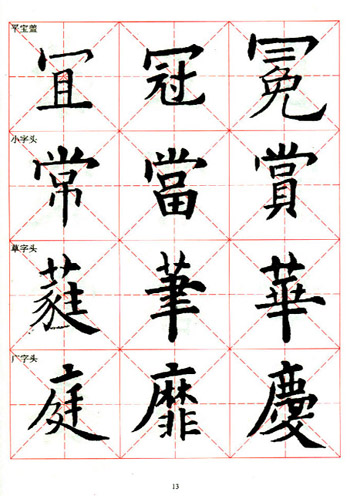 平宝盖
冝冠冕
小字头
常當賞
草字头
蕤茟華
广字头
庭靡慶
13